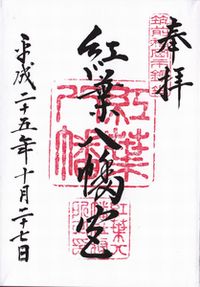 奉拝
紅葉八幡宮
紅葉八幡
平成二十五年十月二十七日